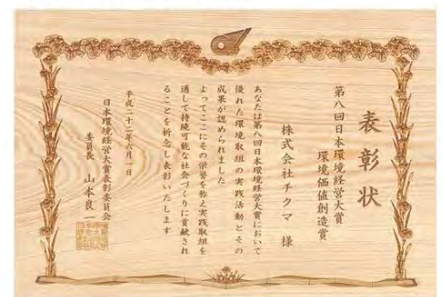 表彰状
第八回日本環境経営大賞
環境価値創造賞
株式会社チクマ 様
あなたは第八回日本環境経営大賞において
優れた環境取組の実践活動とその
成果が認められました
よってここにその栄誉を称え実践取組を
通して持続可能な社会づくりに貢献され
ることを祈念し表彰いたします
平成二十二年六月一日
日本環境経営大賞表彰委員会
委員長 山本良一